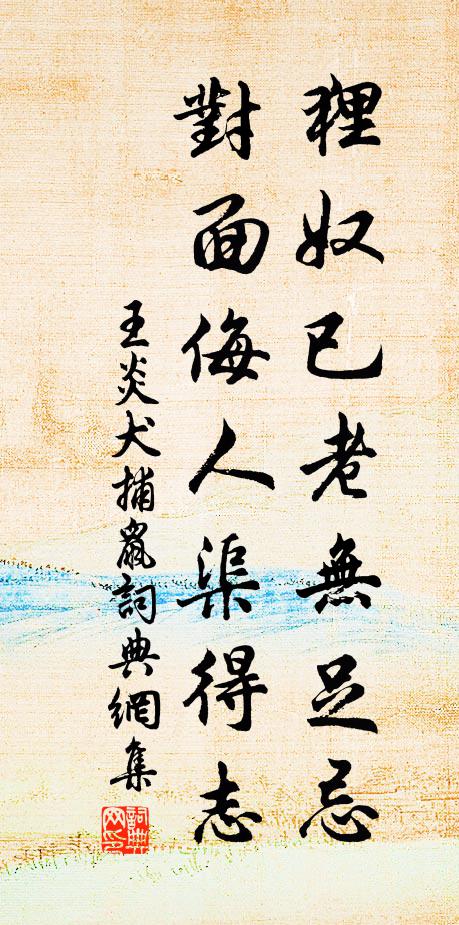 狸奴已老無足忌
對面侮人渠得志
王炎犬捕鼠詞典網集
詞典
网印